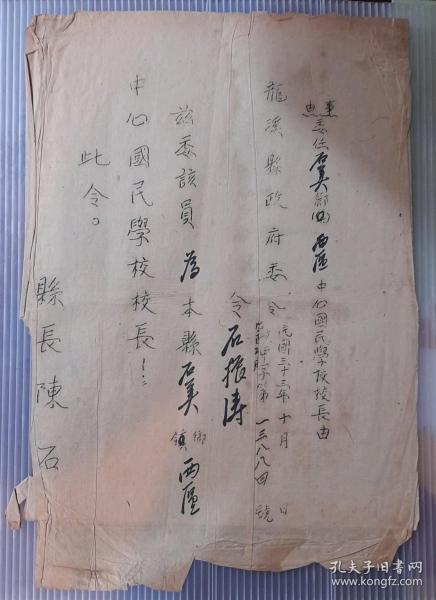 事由 委任石美鄉(鎮)西區中心國民學校校長由
龍溪縣政府委令 民國三十三年十月 日
字第一三八八四號
令石振濤
茲委該員為本縣石美鄉鎮西區
中心國民學校校長！：
此令。
縣長陳石
孔夫子旧书网
www.kongfz.com